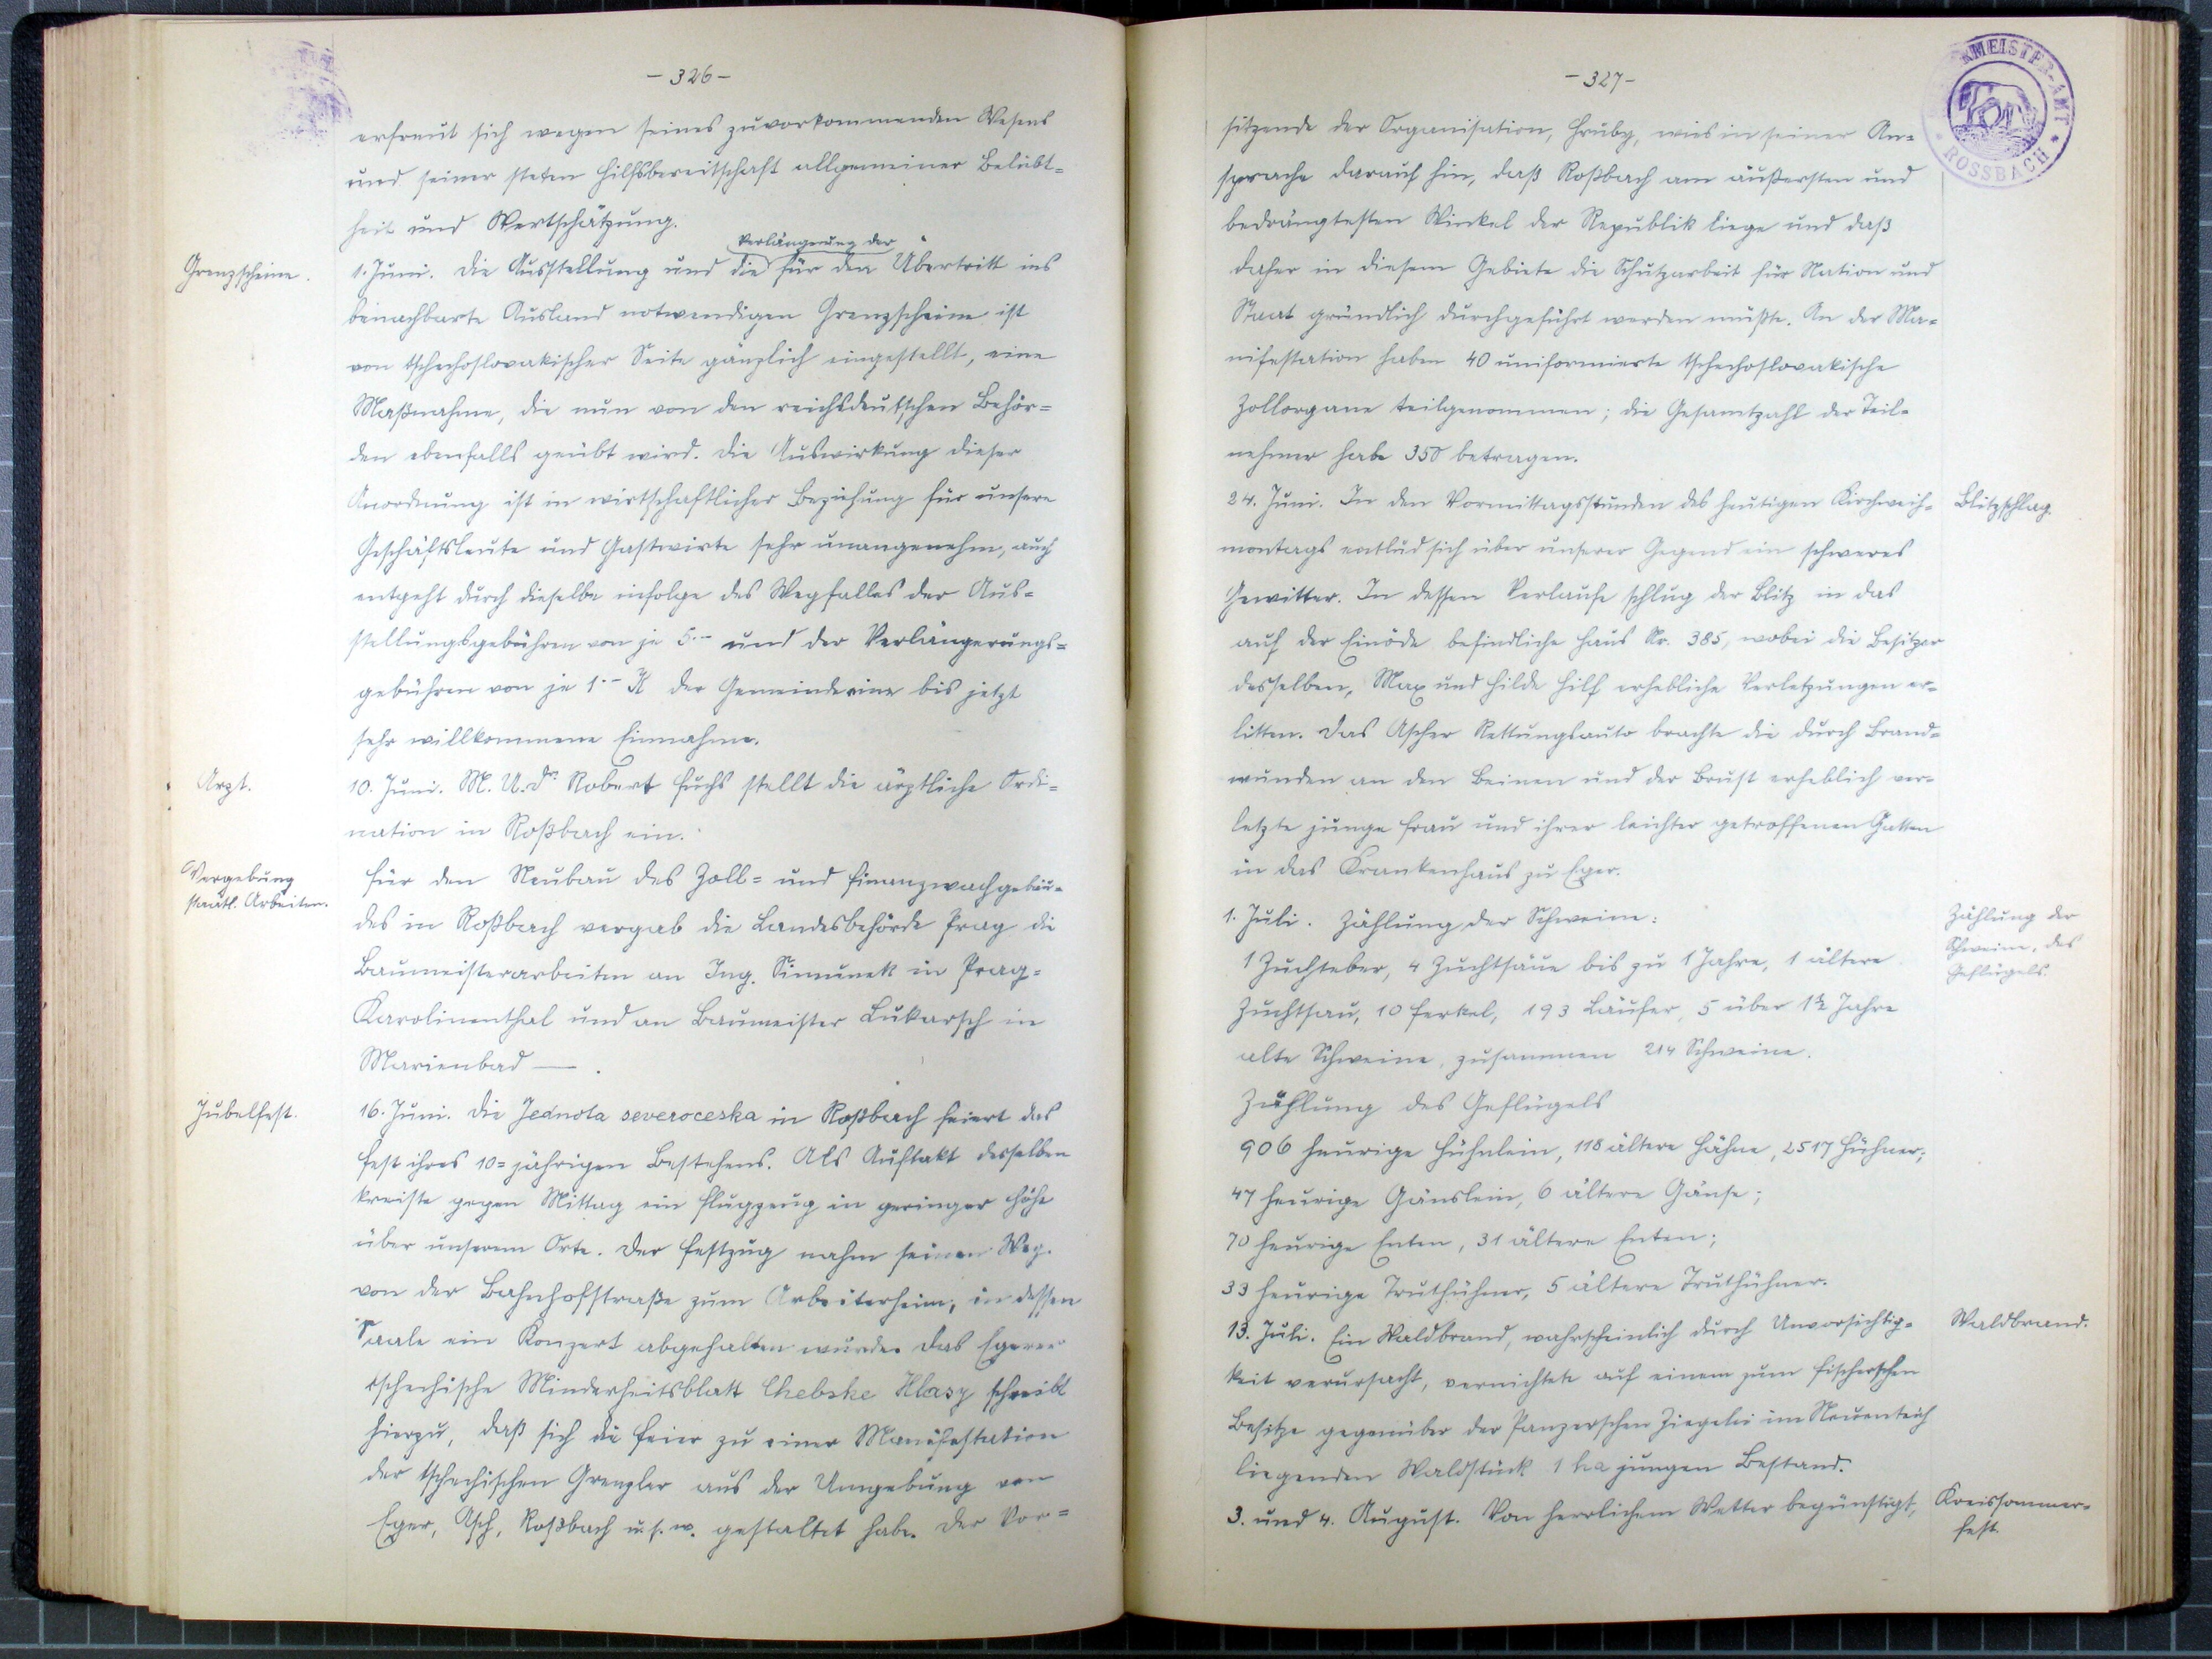 - 326 -
erfreut sich wegen seines zuvorkommenden Wesens
und seiner steten Hilfsbereitschaft allgemeiner Beliebt=
heit und Wertschätzung.
Grenzscheine.
Verlängerung der
1. Juni. Die Ausstellung und die für den Übertritt ins
benachbarte Ausland notwendigen Grenzscheine ist
von tschechoslovakischer Seite gänzlich eingestellt, eine
Maßnahme, die nun von den reichsdeutschen Behör=
den ebenfalls geübt wird. Die Auswirkung dieser
Anordnung ist in wirtschaftlicher Beziehung für unsere
Geschäftsleute und Gastwirte sehr unangenehm, auch
entgeht durch dieselbe infolge des Wegfalles der Aus=
stellungsgebühren von je 5.- und der Verlängerungs=
gebühren von je 1.- K der Gemeinde eine bis jetzt
sehr willkommene Einnahme.
Arzt.
10. Juni. M. U. Dr. Robert Fuchs stellt die ärztliche Ordi=
nation in Roßbach ein.
Vergebung
staatl. Arbeiten.
Für den Neubau des Zoll= und Finanzwachgebäu=
des in Roßbach vergab die Landesbehörde Prag die
Baumeisterarbeiten an Ing. Simunek in Prag=
Karolinenthal und an Baumeister Lukarsch in
Marienbad — .
Jubelfest.
16. Juni. Die Jednota severoceska in Roßbach feiert das
Fest ihres 10=jährigen Bestehens. Als Auftakt desselben
kreiste gegen Mittag ein Flugzeug in geringer Höhe
über unserem Orte. Der Festzug nahm seinen Weg
von der Bahnhofstraße zum Arbeiterheim, in dessen
Saale ein Konzert abgehalten wurde. Das Egerer
tschechische Minderheitsblatt Chebske Hlasy schreibt
hierzu, daß sich die Feier zu einer Manifestation
der tschechischen Grenzler aus der Umgebung von
Eger, Asch, Roßbach u. s. w. gestaltet habe. Der Vor=
- 327 -
MEISTER-AMT
* ROSSBACH *
sitzende der Organisation, Hruby, wies in seiner An=
sprache darauf hin, daß Roßbach am äußersten und
bedrängtesten Winkel der Republik liege und daß
daher in diesem Gebiete die Schutzarbeit für Nation und
Staat gründlich durchgeführt werden müßte. An der Ma=
nifestation haben 40 uniformierte tschechoslovakische
Zollorgane teilgenommen; die Gesamtzahl der Teil=
nehmer habe 350 betragen.
24. Juni. In den Vormittagsstunden des heutigen Kirchweih=
Blitzschlag.
montags entlud sich über unserer Gegend ein schweres
Gewitter. In dessen Verlaufe schlug der Blitz in das
auf der Einöde befindliche Haus Nr. 385, wobei die Besitzer
desselben, Max und Hilde Hilf erhebliche Verletzungen er=
litten. Das Ascher Rettungsauto brachte die durch Brand=
wunden an den Beinen und der Brust erheblich ver=
letzte junge Frau und ihren leichter getroffenen Gatten
in das Krankenhaus zu Eger.
1. Juli. Zählung der Schweine:
Zählung der
Schweine, des
Geflügels.
1 Zuchteber, 4 Zuchtsäue bis zu 1 Jahre, 1 ältere
Zuchtsau, 10 Ferkel, 193 Läufer, 5 über 1½ Jahre
alte Schweine, zusammen 214 Schweine.
Zählung des Geflügels
906 heurige Hühnlein, 118 ältere Hähne, 2517 Hühner;
47 heurige Gänslein, 6 ältere Gänse;
70 heurige Enten, 31 ältere Enten;
33 heurige Truthühner, 5 ältere Truthühner.
13. Juli. Ein Waldbrand, wahrscheinlich durch Unvorsichtig=
Waldbrand.
keit verursacht, vernichtete auf einem zum Fischerschen
Besitze gegenüber der Panzerschen Ziegelei im Neuenteich
liegenden Waldstück 1 ha jungen Bestand.
3. und 4. August. Von herrlichem Wetter begünstigt,
Kreissommer=
fest.